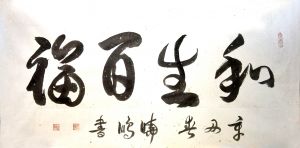 和生百福
辛丑春 書